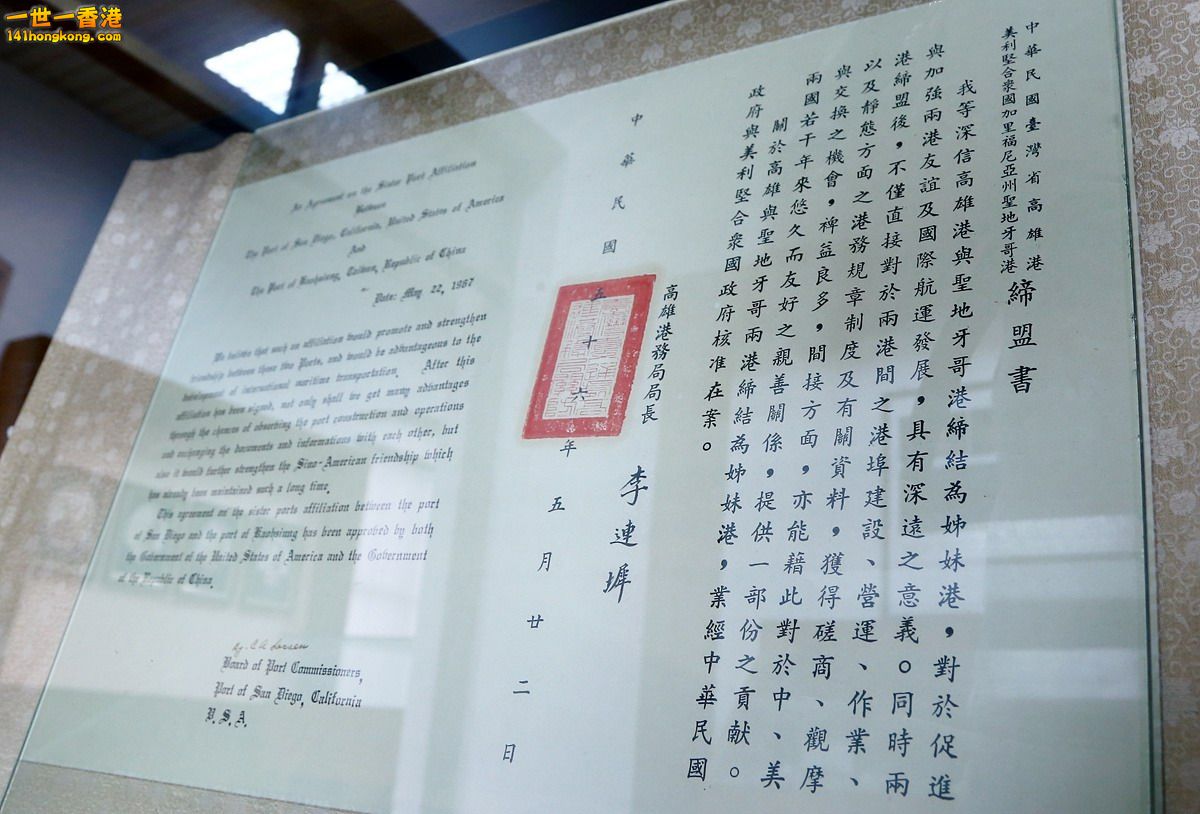 一世一香港
141hongkong.com
An Agreement on the Sister Port Affiliation
Between
The Port of San Diego, California, United States of America
And
The Port of Kaohsiung, Taiwan, Republic of China
Date: May 22, 1967
We believe that such an affiliation would promote and strengthen
friendship between these two Ports, and would be advantageous to the
development of international maritime transportation. After this
affiliation has been signed, not only shall we get many advantages
through the chances of observing the port construction and operations
and exchanging the documents and informations with each other, but
also it would further strengthen the Sino-American friendship which
has already been maintained such a long time.
This agreement on the sister ports affiliation between the port
of San Diego and the port of Kaohsiung has been approved by both
the Government of the United States of America and the Government
of the Republic of China.
Board of Port Commissioners,
Port of San Diego, California
U.S.A.
中華民國臺灣省高雄港
美利堅合衆國加里福尼亞州聖地牙哥港
締盟書
我等深信高雄港與聖地牙哥港締結為姊妹港，對於促進
與加強兩港友誼及國際航運發展，具有深遠之意義。同時兩
港締盟後，不僅直接對於兩港間之港埠建設、營運、作業、
以及靜態方面之港務規章制度及有關資料，獲得磋商、觀摩
與交換之機會，裨益良多，間接方面，亦能藉此對於中、美
兩國若干年來悠久而友好之親善關係，提供一部份之貢献。
關於高雄與聖地牙哥兩港締結為姊妹港，業經中華民國
政府與美利堅合衆國政府核准在案。
高雄港務局局長 李連墀
中華民國五十六年五月廿二日